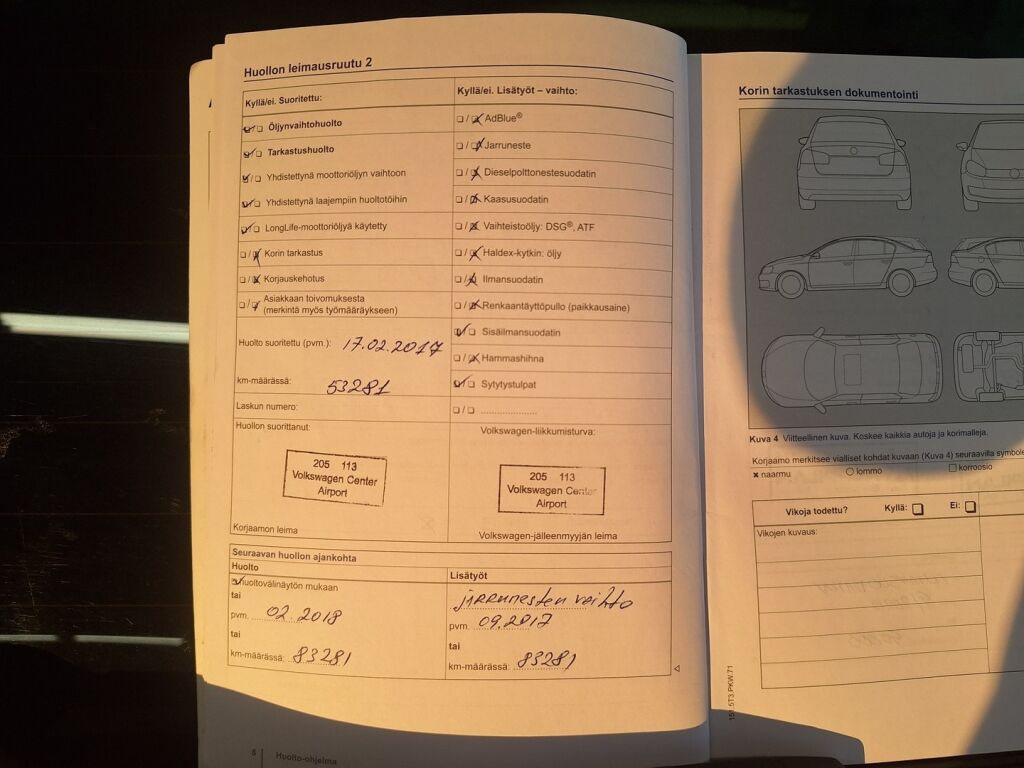 Huollon leimausruutu 2
Kyllä/ei. Suoritettu:
Öljynvaihtohuolto
Tarkastushuolto
Yhdistettynä moottoriöljyn vaihtoon
Yhdistettynä laajempiin huoltotöihin
LongLife-moottoriöljyä käytetty
Korin tarkastus
Korjauskehotus
Asiakkaan toivomuksesta
(merkintä myös työmääräykseen)
Huolto suoritettu (pvm.): 17.02.2017
km-määrässä: 53281
Laskun numero:
Huollon suorittanut:
205 113
Volkswagen Center
Airport
Korjaamon leima
Kyllä/ei. Lisätyöt – vaihto:
AdBlue®
Jarruneste
Dieselpolttonestesuodatin
Kaasusuodatin
Vaihteistoöljy: DSG®, ATF
Haldex-kytkin: öljy
Ilmansuodatin
Renkaantäyttöpullo (paikkausaine)
Sisäilmansuodatin
Hammashihna
Sytytystulpat
Volkswagen-liikkumisturva:
205 113
Volkswagen Center
Airport
Volkswagen-jälleenmyyjän leima
Seuraavan huollon ajankohta
Huolto
huoltovälinäytön mukaan
tai
pvm. 02.2018
tai
km-määrässä: 83281
Lisätyöt
jarrunesten vaihto
pvm. 09.2017
tai
km-määrässä: 83281
5 Huolto-ohjelma
Korin tarkastuksen dokumentointi
Kuva 4 Viitteellinen kuva. Koskee kaikkia autoja ja korimalleja.
Korjaamo merkitsee vialliset kohdat kuvaan (Kuva 4) seuraavilla
naarmu lommo korroosio
Vikoja todettu? Kyllä: Ei:
Vikojen kuvaus: